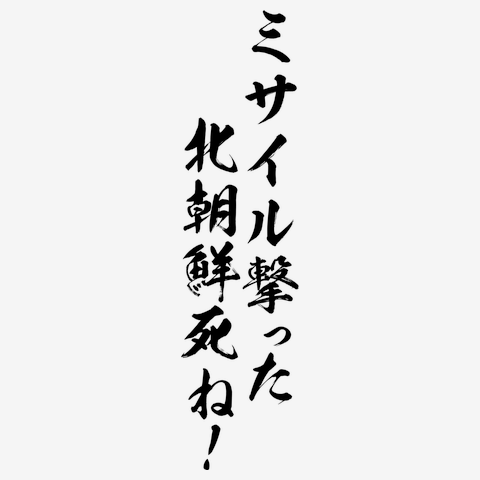 ミサイル撃った
北朝鮮死ね!